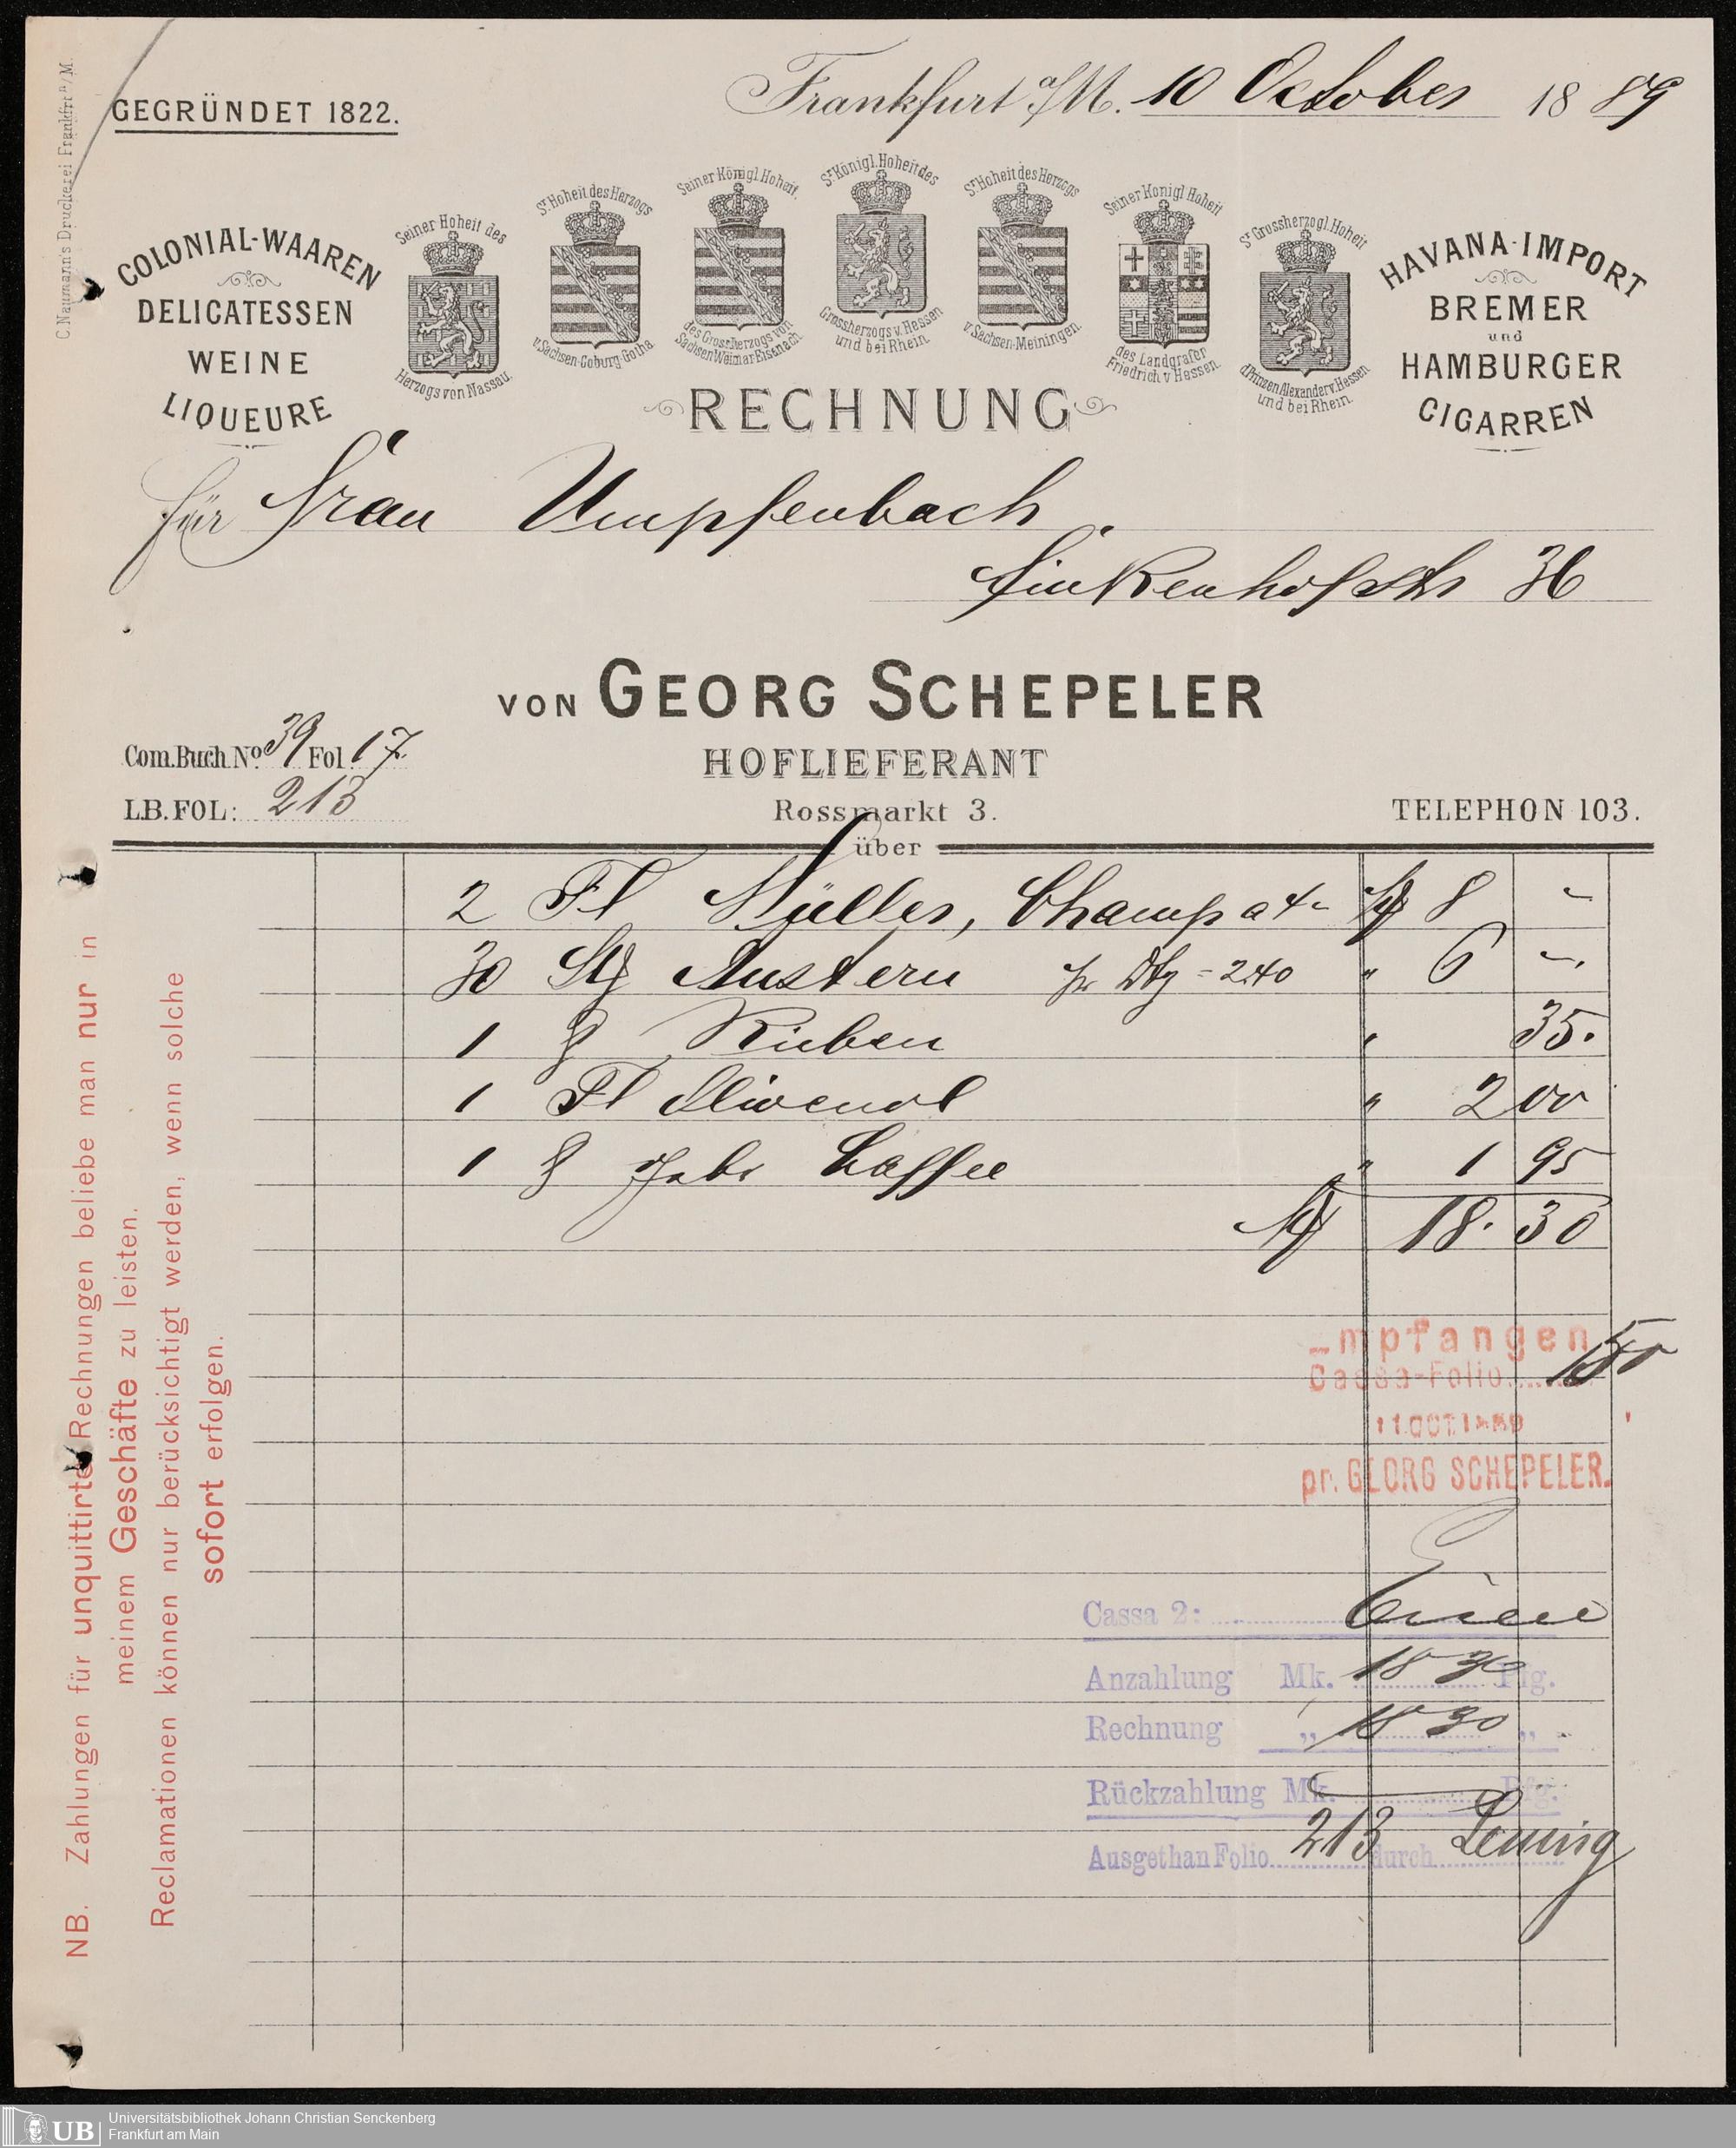 C. Naumann's Druckerei Frankfurt a/M.
GEGRÜNDET 1822.
Frankfurt a/M. 10 October 1889
COLONIAL-WAAREN
DELICATESSEN
WEINE
LIQUEURE
Seiner Hoheit des
Herzogs von Nassau.
Sr. Hoheit des Herzogs
v. Sachsen-Coburg-Gotha.
Seiner Königl. Hoheit.
des Grossherzogs von
Sachsen Weimar Eisenach.
Sr. Königl. Hoheit des
Grossherzogs v. Hessen
und bei Rhein.
Sr. Hoheit des Herzogs
v. Sachsen-Meiningen.
Seiner Königl Hoheit
des Landgrafen
Friedrich v Hessen.
Sr. Grossherzogl. Hoheit
d. Prinzen Alexander v. Hessen
und bei Rhein.
HAVANA-IMPORT
BREMER
und
HAMBURGER
CIGARREN
RECHNUNG
für Frau Umpfenbach.
Finkenhofstr 36
VON GEORG SCHEPELER
HOFLIEFERANT
Rossmarkt 3.
Com. Buch No. 39 Fol. 17.
L.B. FOL: 213
TELEPHON 103.
über
2 Fl Müller, Champ a 4 - M 8 -
30 St Austern pr Dtz = 2.40 " 6 -.
1 Rüben " 35.
1 Fl Olivenol " 2 00
1 Caffee " 1 95
M 18. 30
NB. Zahlungen für unquittirte Rechnungen beliebe man nur in
meinem Geschäfte zu leisten.
Reclamationen können nur berücksichtigt werden, wenn solche
sofort erfolgen.
Empfangen
Cassa-Folio
11. OCT. 1889
pr. GEORG SCHEPELER.
Cassa 2:
Anzahlung Mk. 18 30 Pfg.
Rechnung „ 18 30 „
Rückzahlung Mk. Pfg.
Ausgethan Folio 213 durch
UB
Universitätsbibliothek Johann Christian Senckenberg
Frankfurt am Main